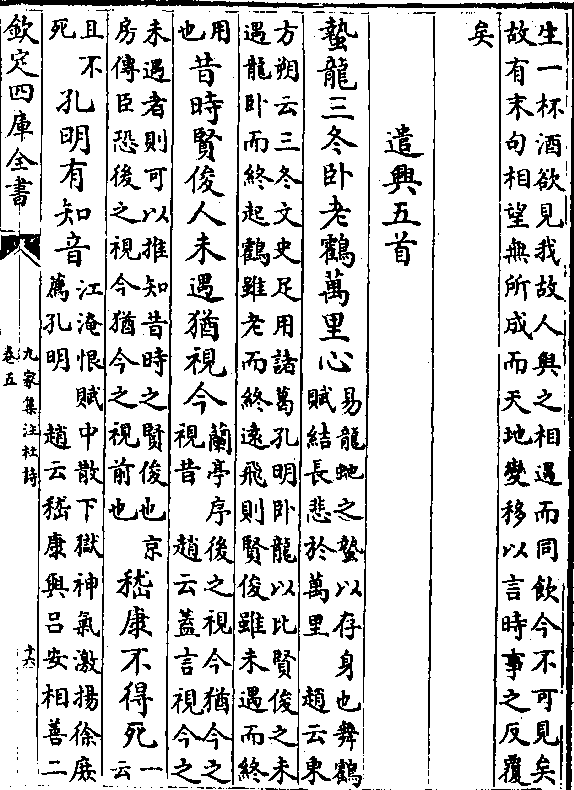 生一杯酒欲見我故人與之相遇而同飲今不可見矣
故有末句相望無所成而天地變移以言時事之反覆
矣
遣興五首
蟄龍三冬卧老鶴萬里心
易龍虵之蟄以存身也舞鶴
賦結長悲於萬里　趙云東
方朔云三冬文史足用諸葛孔明卧龍以比賢俊之未
遇龍卧而終起鶴雖老而終遠飛則賢俊雖未遇而終
用
也
昔時賢俊人未遇猶視今
蘭亭序後之視今猶今之
視昔　趙云蓋言視今之
未遇者則可以推知昔時之賢俊也　京
房傳臣恐後之視今猶今之視前也
嵇康不得死
一
云
且不
死
孔明有知音
江淹恨賦中散下獄神氣激揚徐庶
薦孔明　趙云嵇康與呂安相善二
欽定四庫全書
九家集注杜詩
卷五
十六